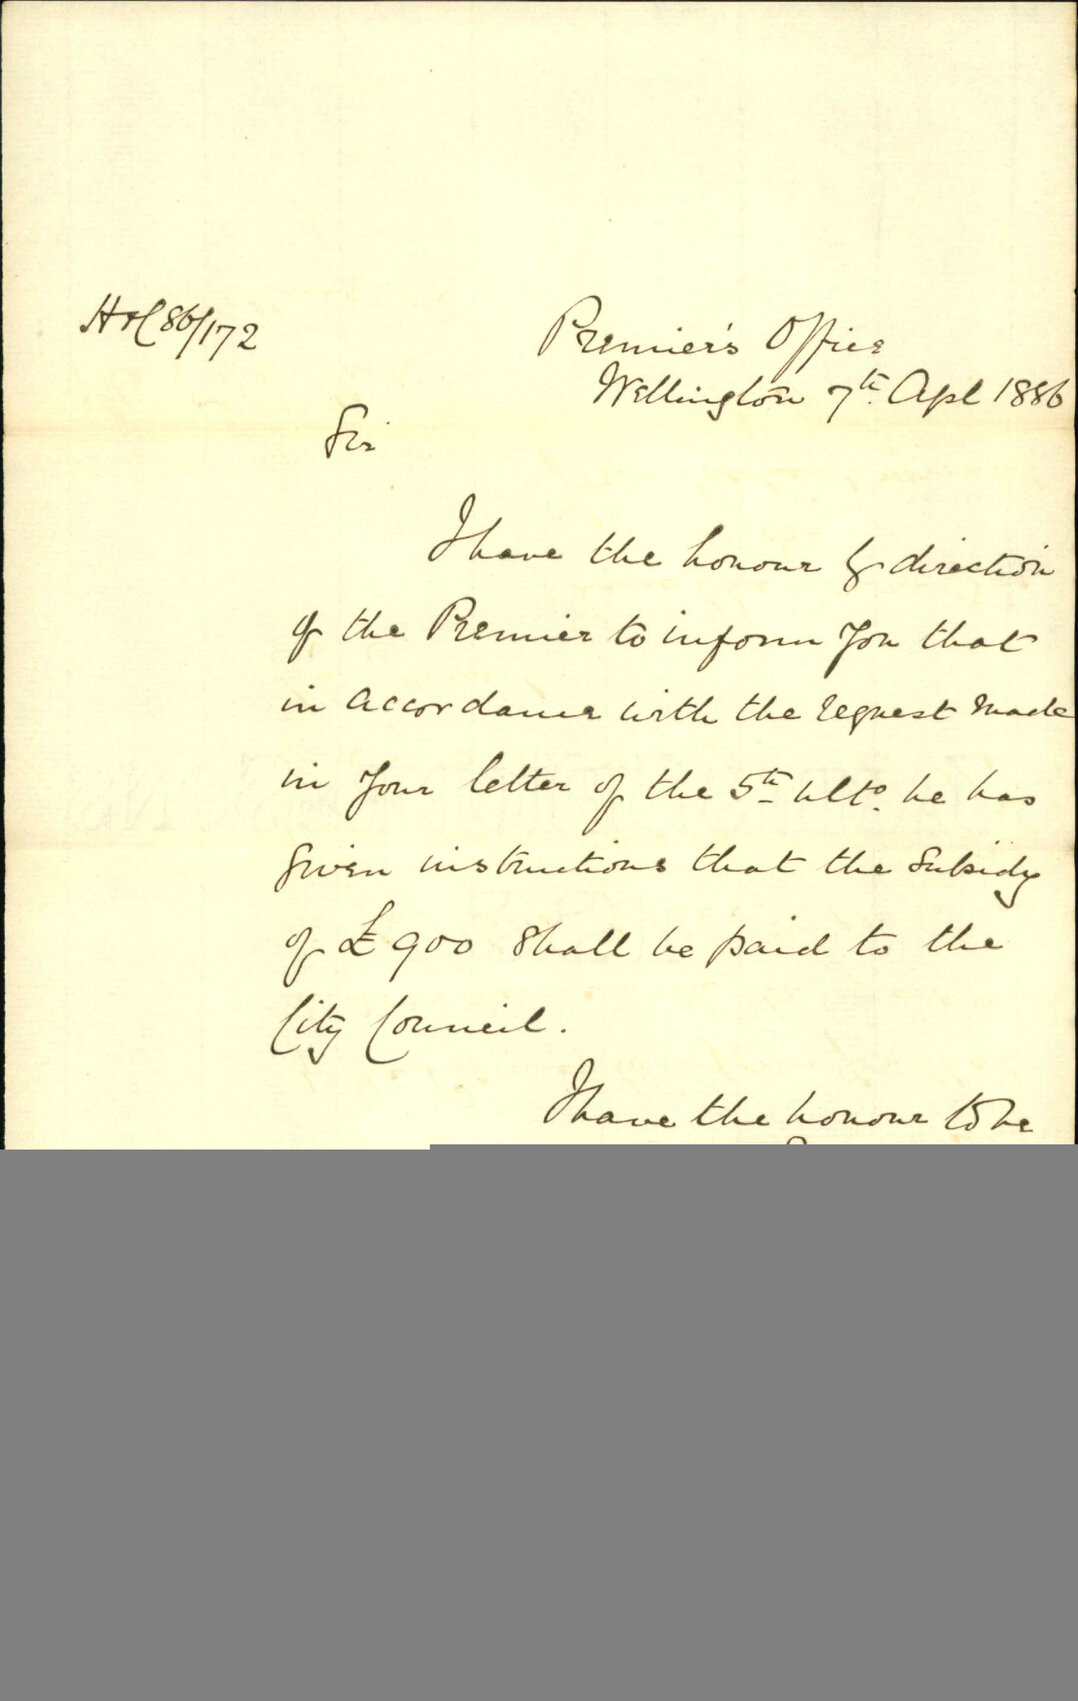 H&C 86/172
Premier's Office
Wellington 7th. Apl 1886
Sir
I have the honour by direction
of the Premier to inform you that
in accordance with the request made
in your letter of the 5th ulto. he has
given instructions that the subsidy
of £900 shall be paid to the
City Council.
I have the honour to be